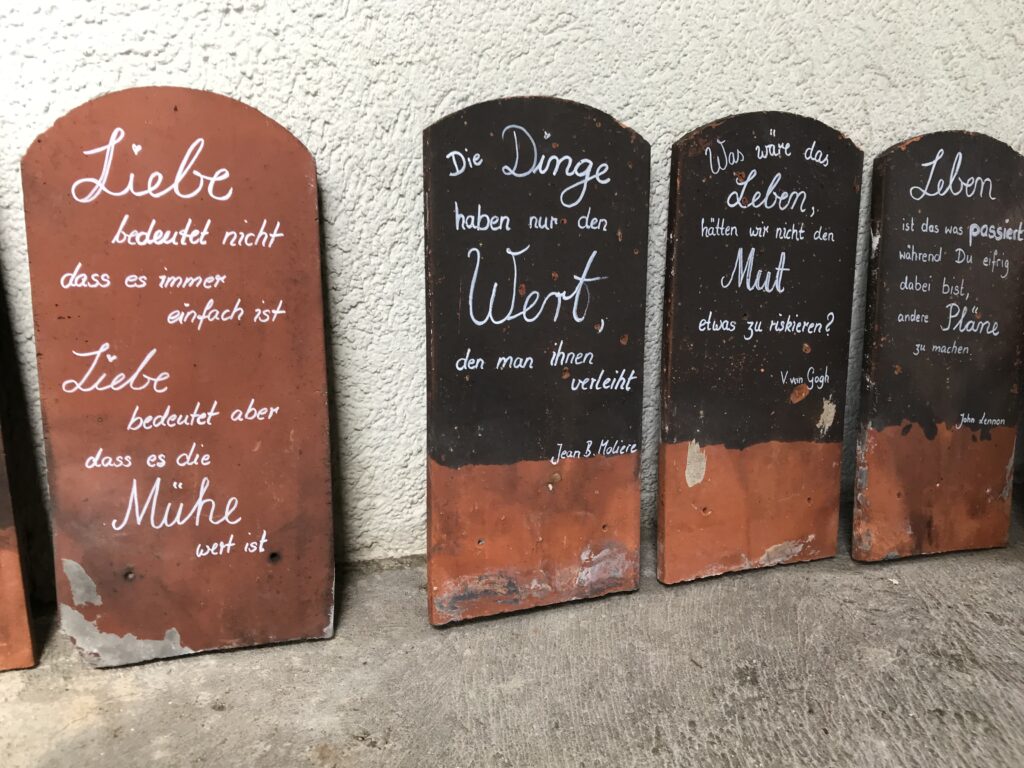 Liebe
bedeutet nicht
dass es immer
einfach ist
Liebe
bedeutet aber
dass es die
Mühe
wert ist
Die Dinge
haben nur den
Wert,
den man ihnen
verleiht
Jean B. Moliere
Was wäre das
Leben,
hätten wir nicht den
Mut
etwas zu riskieren?
V. van Gogh
Leben
ist das was passiert
während Du eifrig
dabei bist,
andere Pläne
zu machen
John Lennon